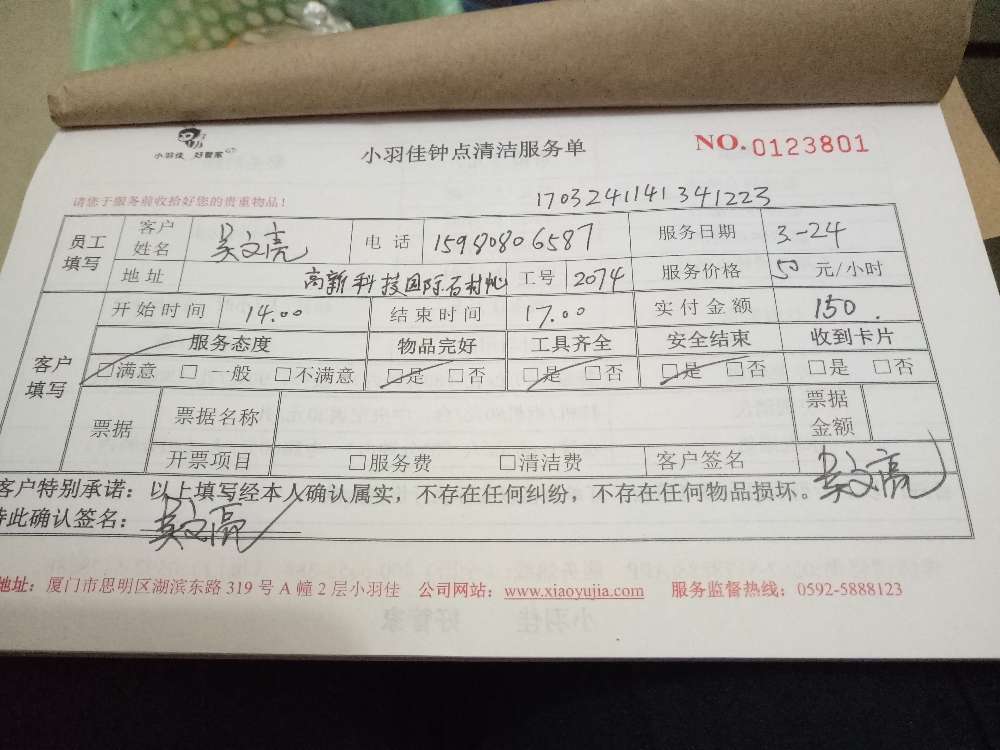 小羽佳 好管家
小羽佳钟点清洁服务单
NO.0123801
请您于服务前收拾好您的贵重物品！
1703241141341223
员工填写 客户姓名 吴文亮 电话 15980806587 服务日期 3-24
地址 高新科技国际石材 工号 2074 服务价格 50 元/小时
客户填写 开始时间 14.00 结束时间 17.00 实付金额 150.
服务态度 物品完好 工具齐全 安全结束 收到卡片
□满意 □一般 □不满意 □是 □否 □是 □否 □是 □否 □是 □否
票据 票据名称 票据金额
开票项目 □服务费 □清洁费 客户签名 吴文亮
客户特别承诺：以上填写经本人确认属实，不存在任何纠纷，不存在任何物品损坏。
特此确认签名： 吴文亮
地址：厦门市思明区湖滨东路 319 号 A 幢 2 层小羽佳 公司网站：www.xiaoyujia.com 服务监督热线：0592-5888123